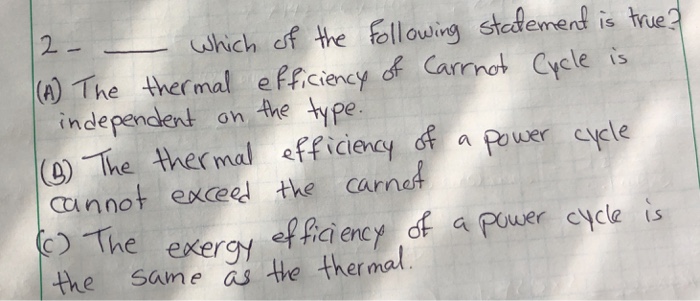 2 - ___ which of the following statement is true?
(A) The thermal efficiency of Carrnot Cycle is
independent on the type.
(B) The thermal efficiency of a power cycle
cannot exceed the carnot
(C) The exergy efficiency of a power cycle is
the same as the thermal.